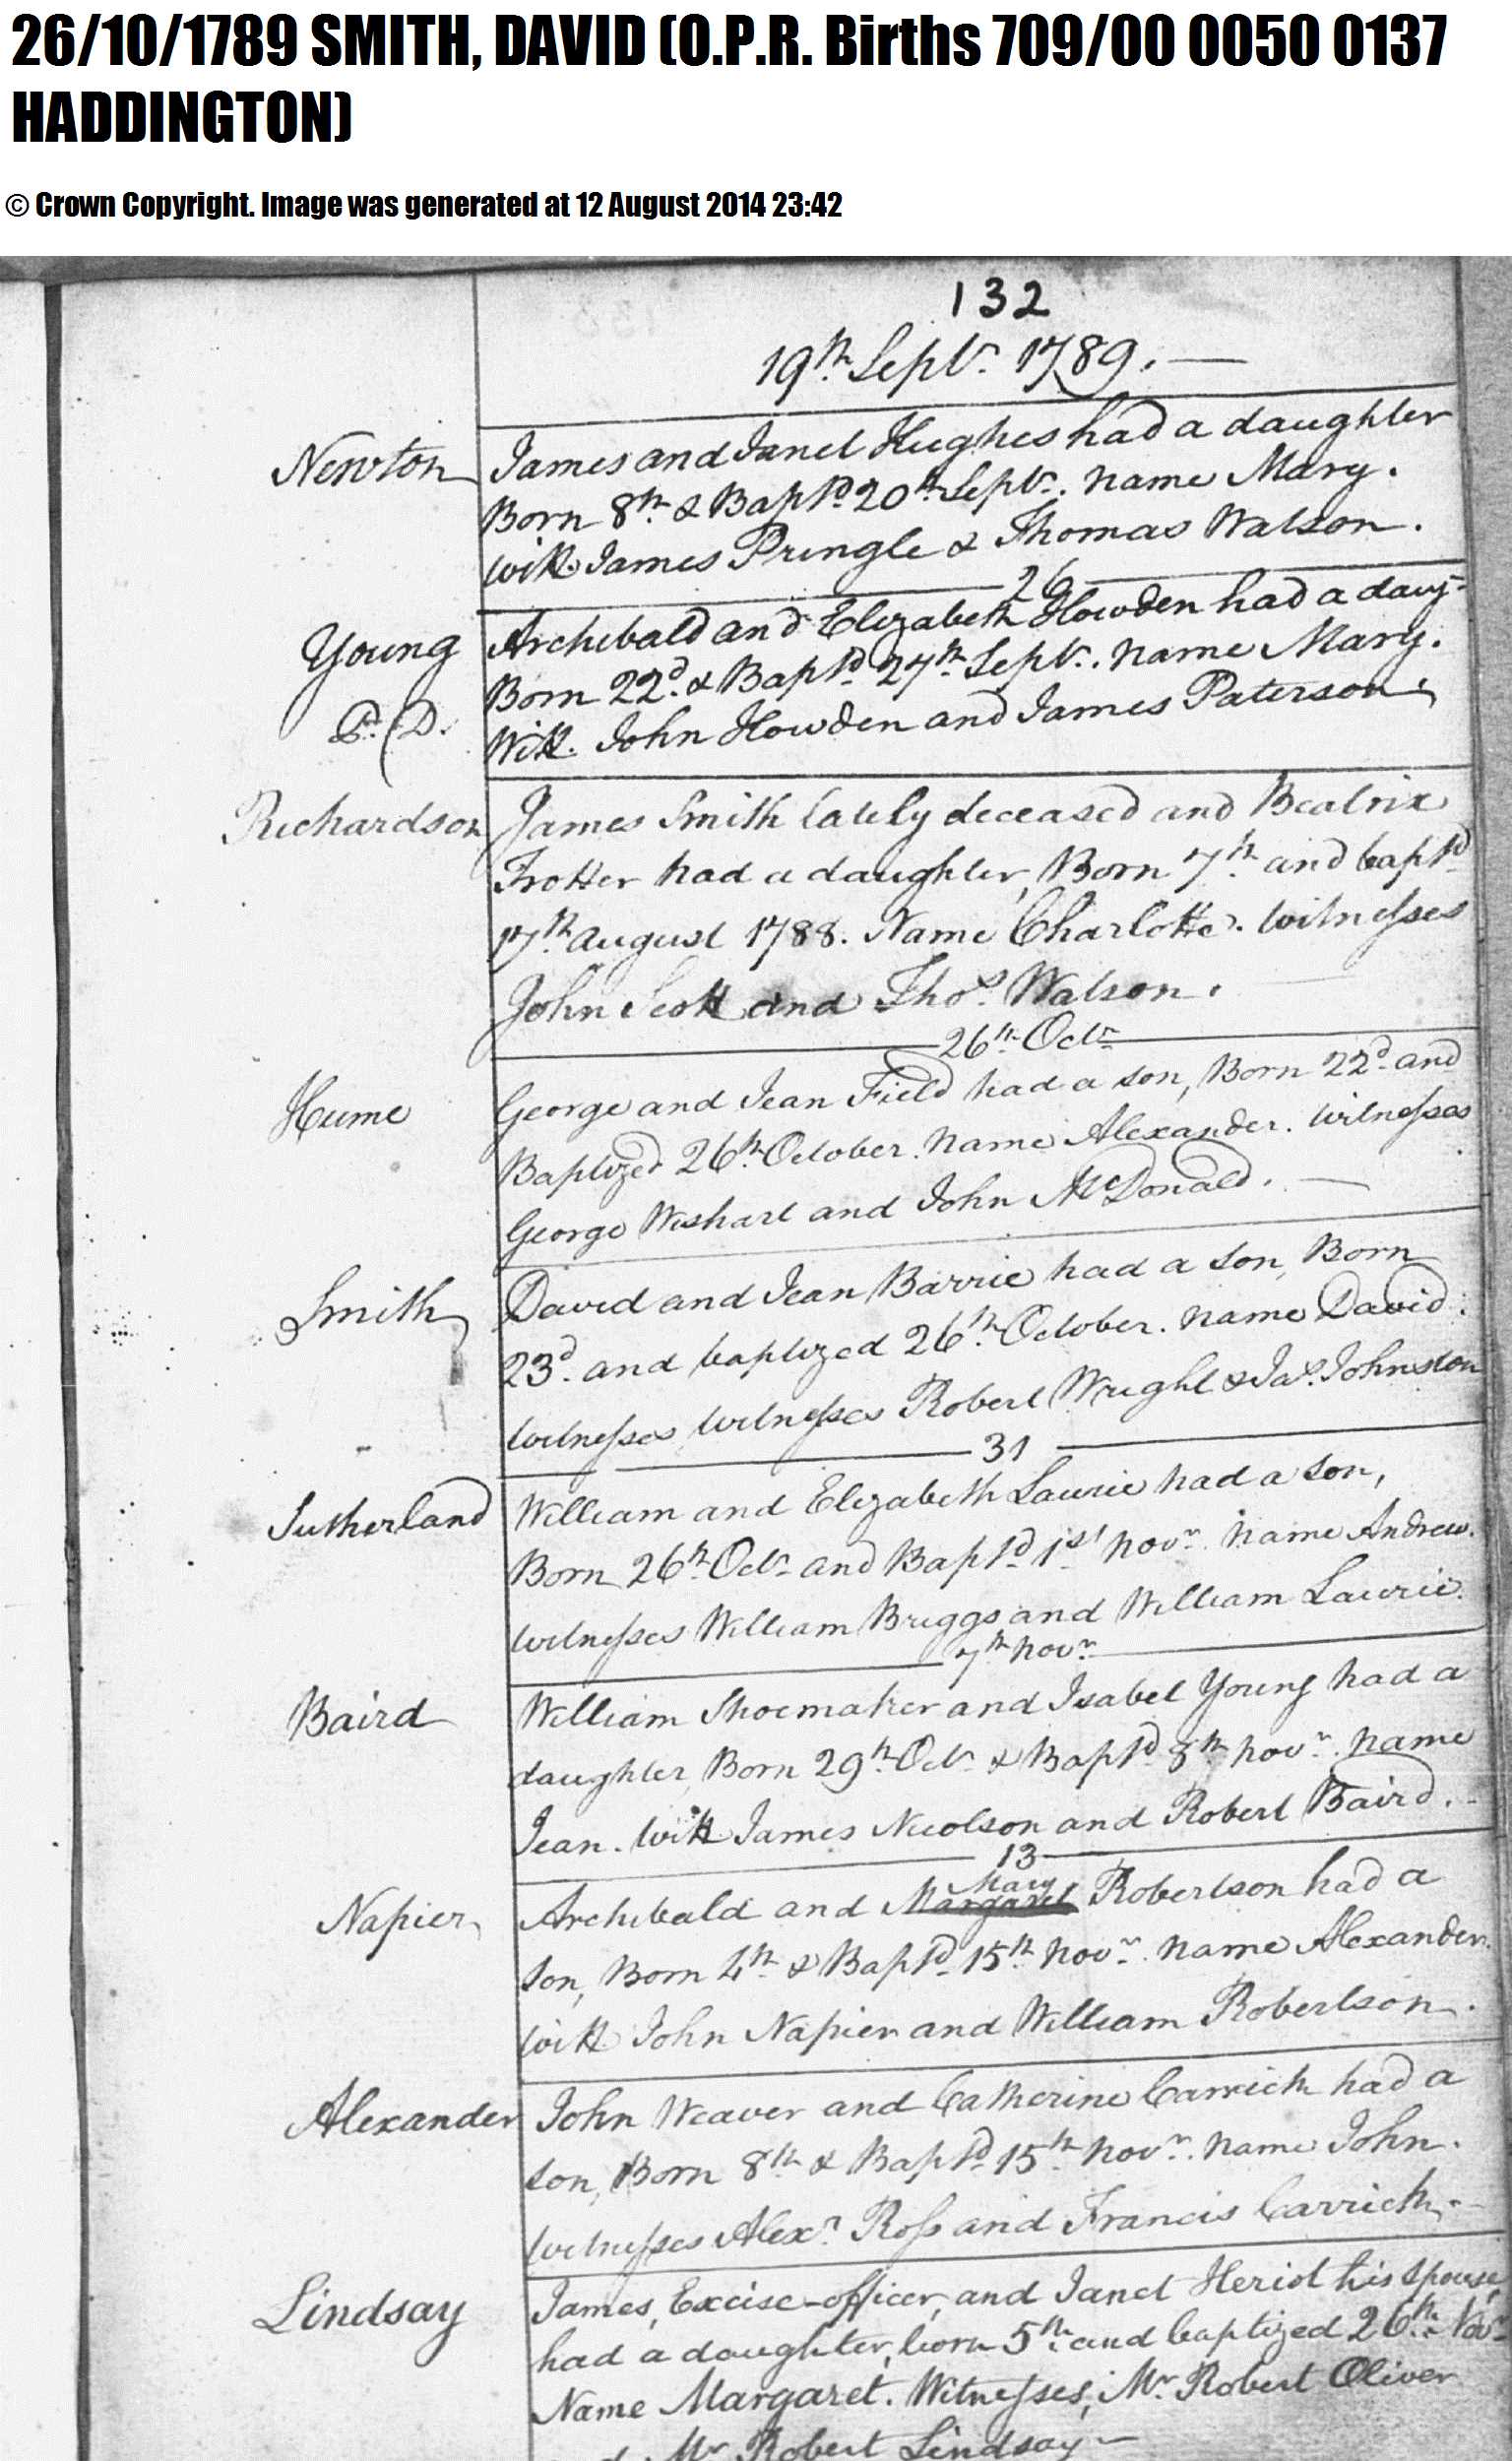 26/10/1789 SMITH, DAVID (O.P.R. Births 709/00 0050 0137
HADDINGTON)
© Crown Copyright. Image was generated at 12 August 2014 23:42
132
19th. Septr. 1789. —
Newton James and Janet Hughes had a daughter
Born 8th. & Baptd. 20th Septr. name Mary.
witt. James Pringle & Thomas Watson.
26
Young Archibald and Elizabeth Howden had a daug-
Born 22d. & Baptd. 27th. Septr. name Mary.
P. D. Witt. John Howden and James Paterson.
Richardson James Smith lately deceased and Beatrix
Trotter had a daughter, Born 7th. and baptd.
17th. august 1788. Name Charlotte. witnesses
John Scott and Thos. Watson.
26th. Octr.
Hume George and Jean Field had a son, Born 22d. and
Baptized 26th. October. name Alexander. witnesses
George Wishart and John McDonald. —
Smith David and Jean Barrie had a son, Born
23d. and baptized 26th. October. name David.
witnesses witnesses Robert Wright & Jas. Johnston
31
Sutherland William and Elizabeth Laurie had a son,
Born 26th. Octr. and Baptd. 1st Novr. name Andrew.
witnesses William Briggs and William Laurie.
7th Novr.
Baird William Shoemaker and Isabel Young had a
daughter, Born 29th. Octr. & Baptd. 8th Novr. name
Jean. Witt James Nicolson and Robert Baird.
13
Mary
Napier Archibald and Margaret Robertson had a
son, Born 4th. & Baptd. 15th. Novr. name Alexander.
witt. John Napier and William Robertson.
Alexander John Weaver and Catherine Carrick had a
son, Born 8th & Baptd. 15th. Novr. name John.
witnesses Alexr. Ross and Francis Carrick.
Lindsay James, Excise-officer, and Janet Heriot his spouse,
had a daughter, born 5th. and baptized 26th. Novr.
Name Margaret. Witnesses, Mr. Robert Oliver
Mr Robert Lindsay —